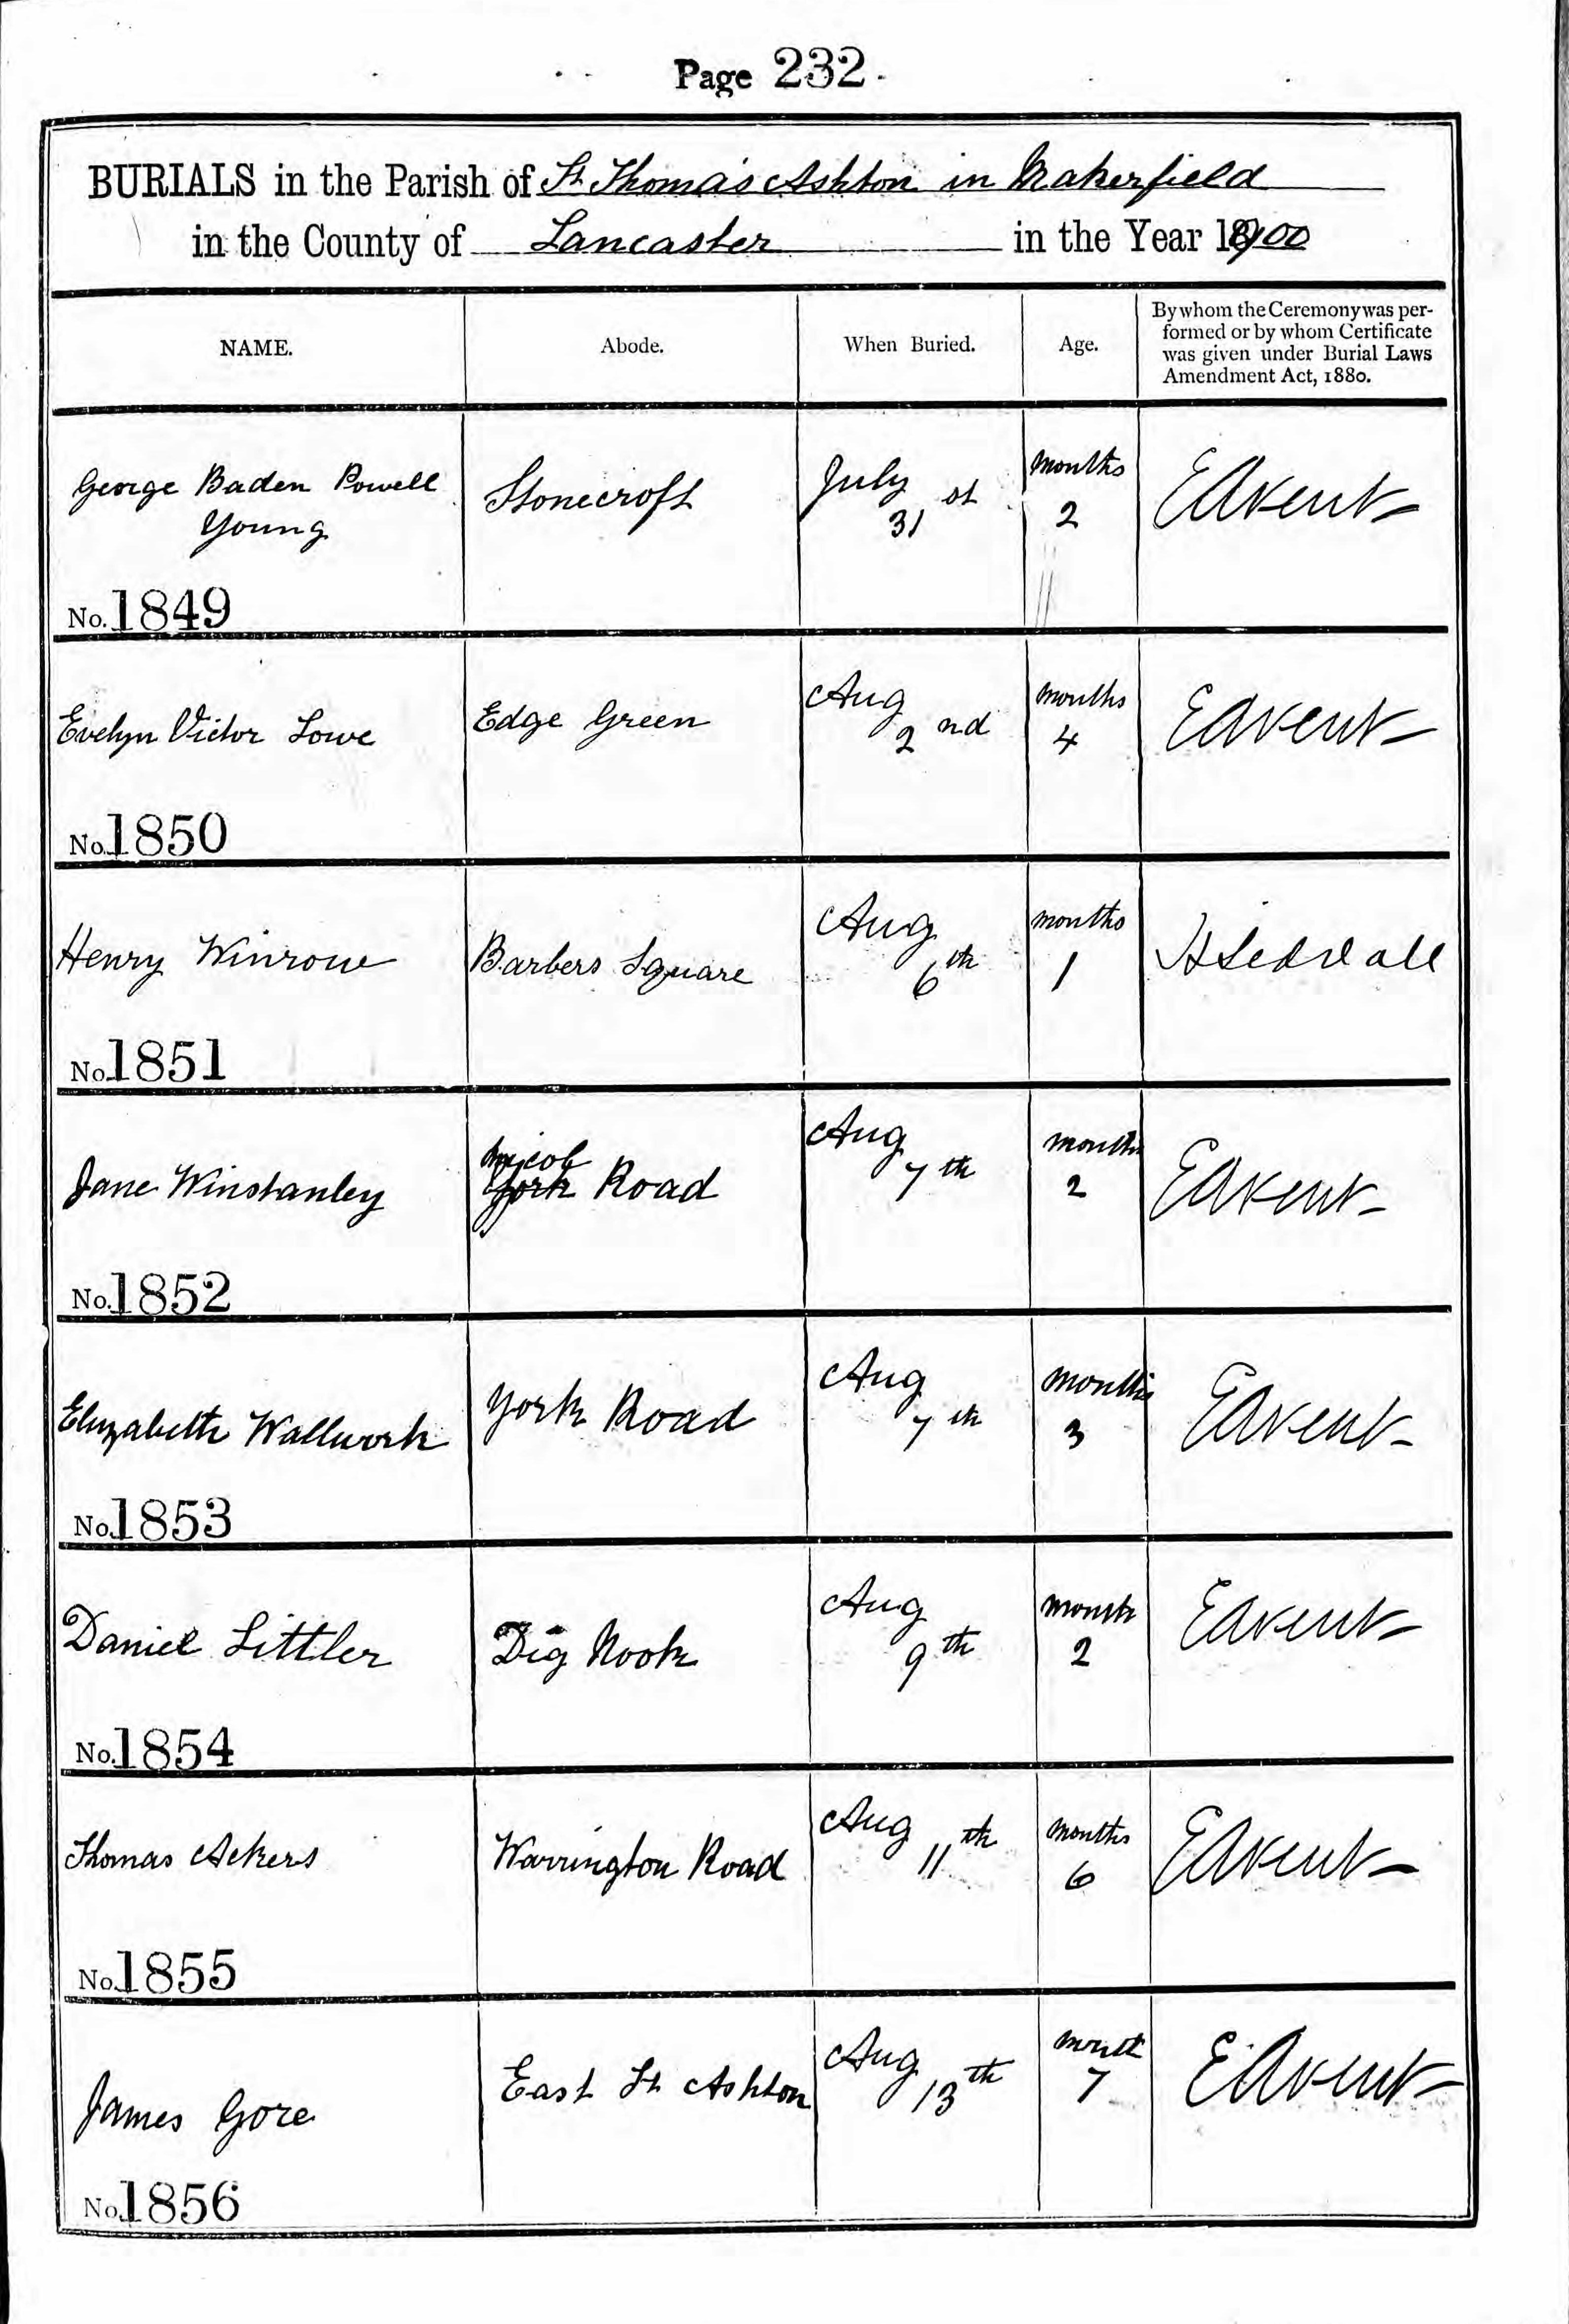 Page 232.
BURIALS in the Parish of St Thomas Ashton in Makerfield
in the County of Lancaster in the Year 1900
NAME.
Abode.
When Buried.
Age.
By whom the Ceremony was per-
formed or by whom Certificate
was given under Burial Laws
Amendment Act, 1880.
George Baden Powell
Young
No. 1849
Stonecroft
July
31 st
months
2
EAKent
Evelyn Victor Lowe
No. 1850
Edge Green
Aug
2 nd
months
4
EAKent
Henry Winrow
No. 1851
Barbers Square
Aug
6th
months
1
H Siddall
Jane Winstanley
No. 1852
York Road
Aug
7 th
months
2
EAKent
Elizabeth Wallwork
No. 1853
York Road
Aug
7 th
months
3
EAKent
Daniel Littler
No. 1854
Dig Nook
Aug
9 th
month
2
EAKent
Thomas Ackers
No. 1855
Warrington Road
Aug
11 th
months
6
EAKent
James Gore
No. 1856
East St Ashton
Aug
13 th
month
7
EAKent